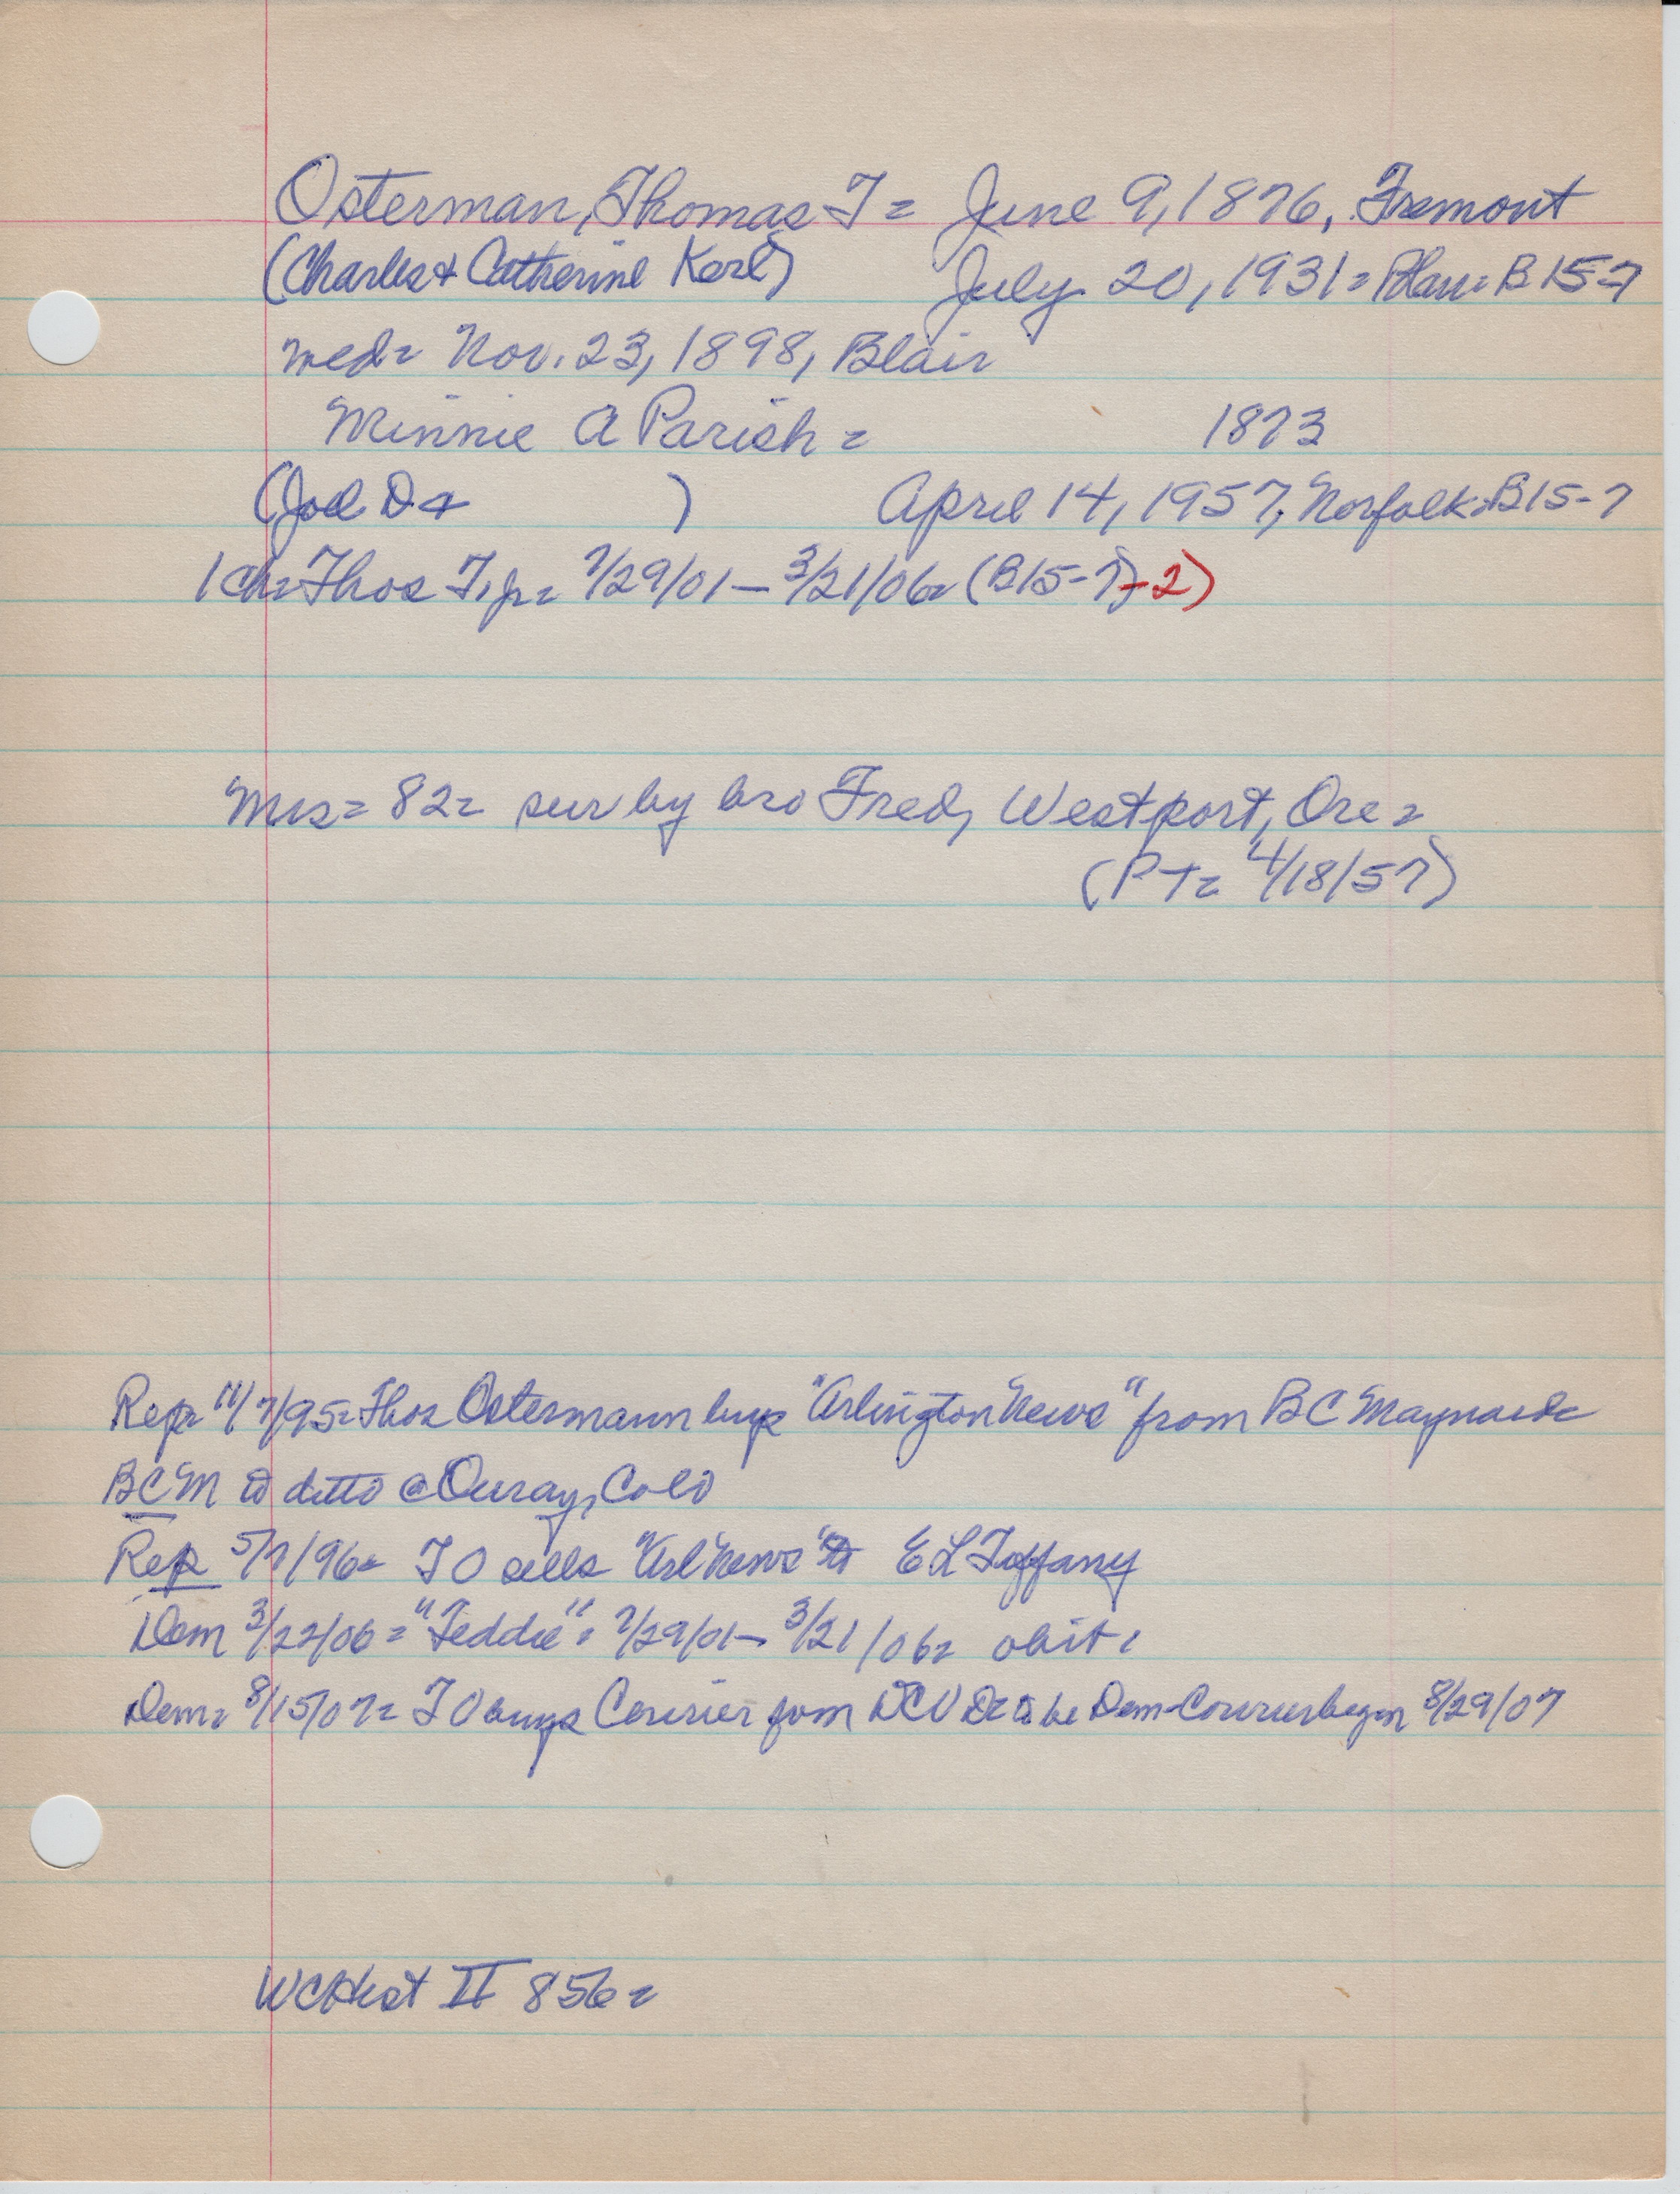 Osterman, Thomas T = June 9, 1876, Fremont
(Charles & Catherine Kerl) July 20, 1931 = Blair = B15-7
wed = Nov. 23, 1898, Blair
Minnie A Parish = 1873
(Joel D + ) April 14, 1957, Norfolk = B15-7
1 ch = Thos T, jr = 7/29/01 — 3/21/06 = (B15-7)-2)
Mrs = 82 = sur by bro Fred, Westport, Ore =
(PT = 4/18/57)
Rep = 11/7/95 = Thos Ostermann buys "Arlington News" from BC Maynard =
BCM to ditto @ Ouray, Colo
Rep 5/7/96 = TO sells "Arl News" to E L Tiffany
Dem 3/22/06 = "Teddie" = 7/29/01 — 3/21/06 = obit =
Dem = 8/15/07 = TO buys Courier from DCV to be Dem-Courier began 8/29/07
WCHist II 856 =